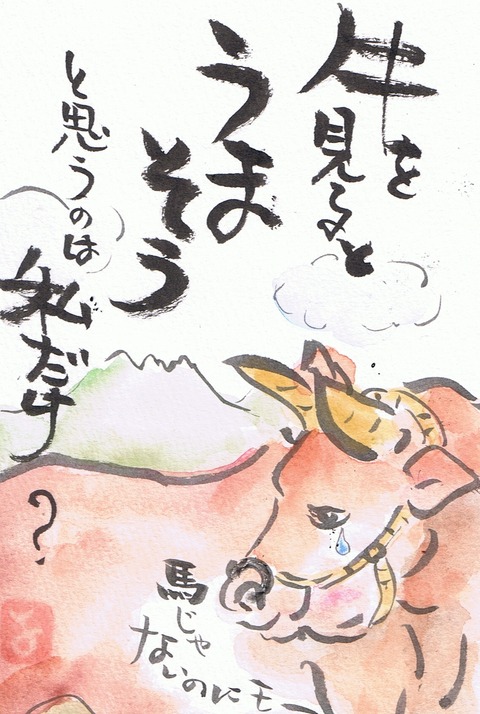 牛を
見ると
うま
そう
と思うのは
私だけ
?
馬じゃ
ないのにモー